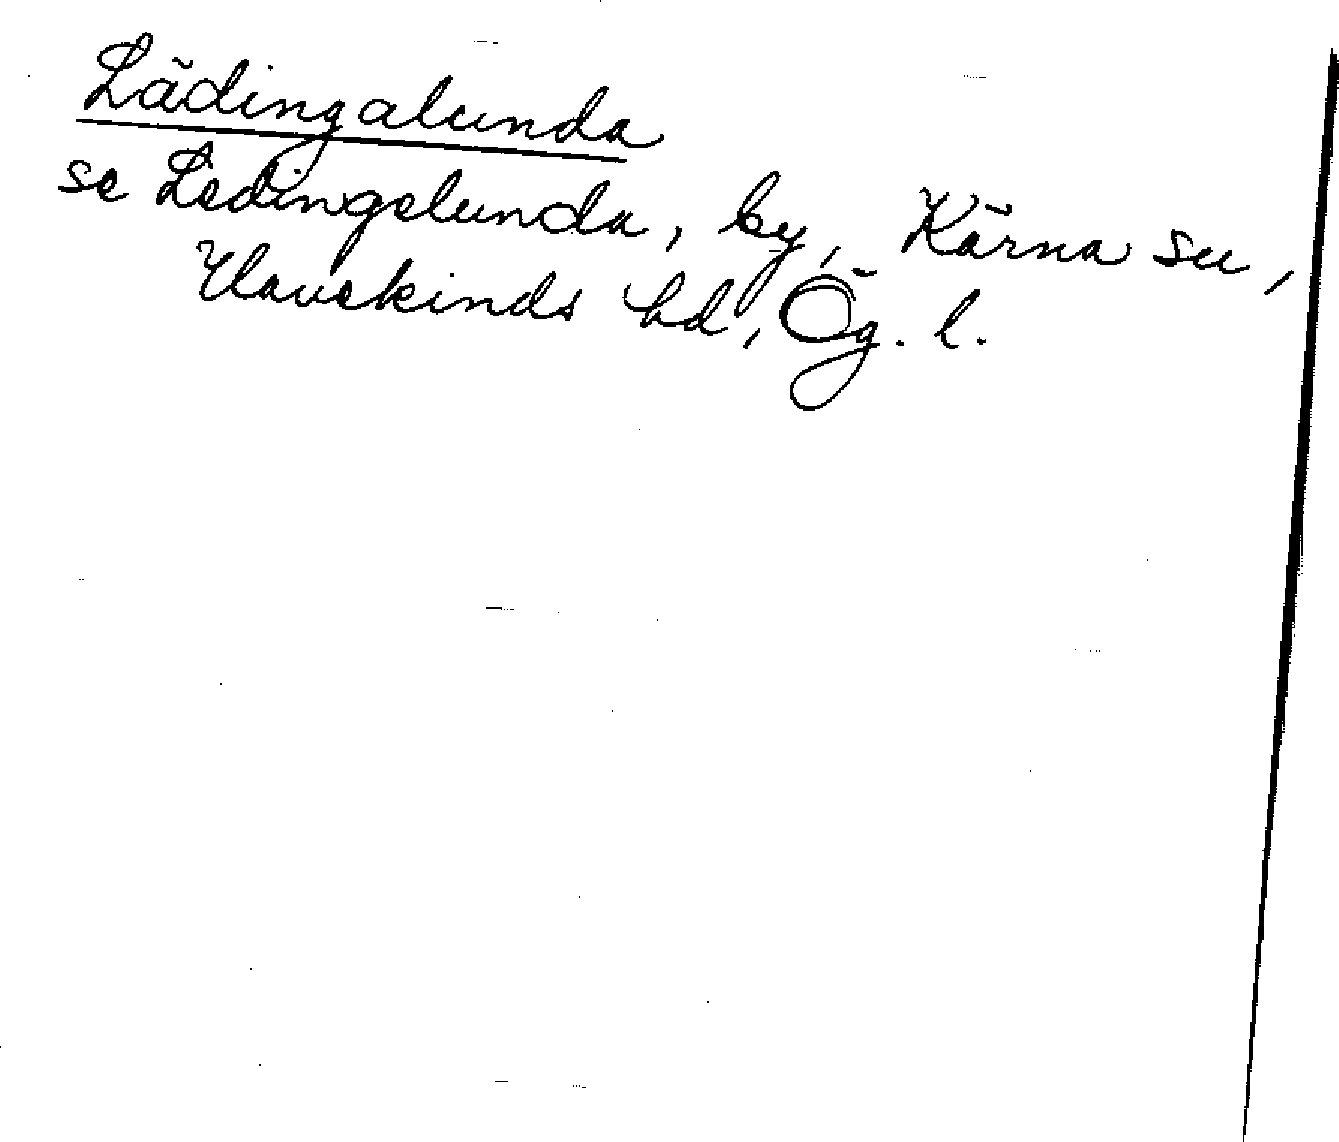 Lädingalunda
se Ledingelunda, by, Kärna sn,
Hanekinds hd, Ög. l.